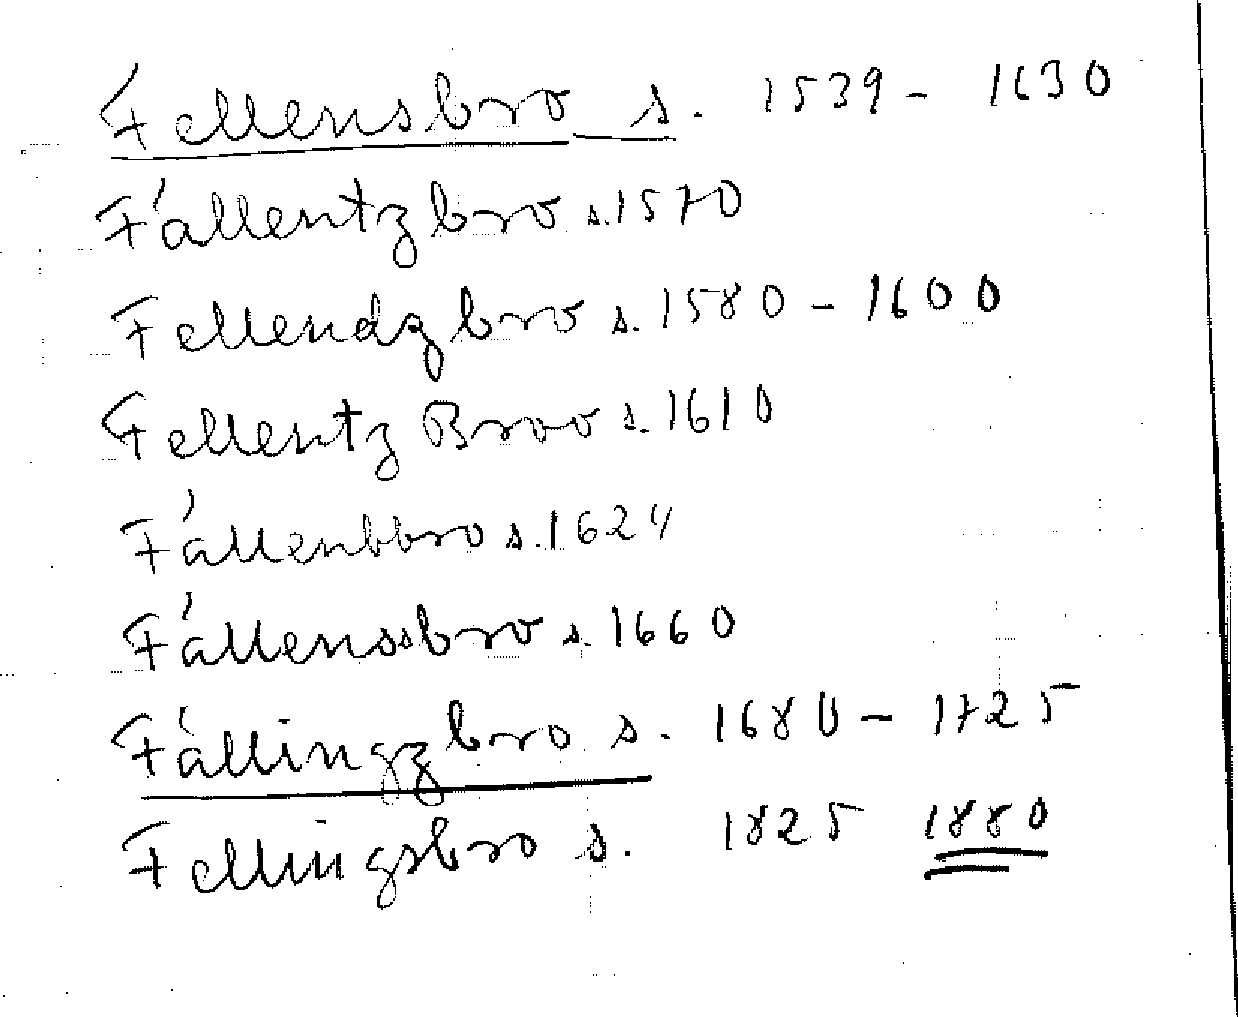 Fellensbro s. 1539 - 1630
Fállentzbro s. 1570
Fellendzbro s. 1580 - 1600
Fellentz Broo s. 1610
Fállenbbro s. 1624
Fállenssbro s. 1660
Fállingzbro s. 1680 - 1725
Fellingsbro s. 1825 1880